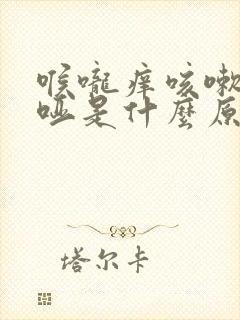 喉嚨痒咳嗽
哑是什麼原
塔尔卡